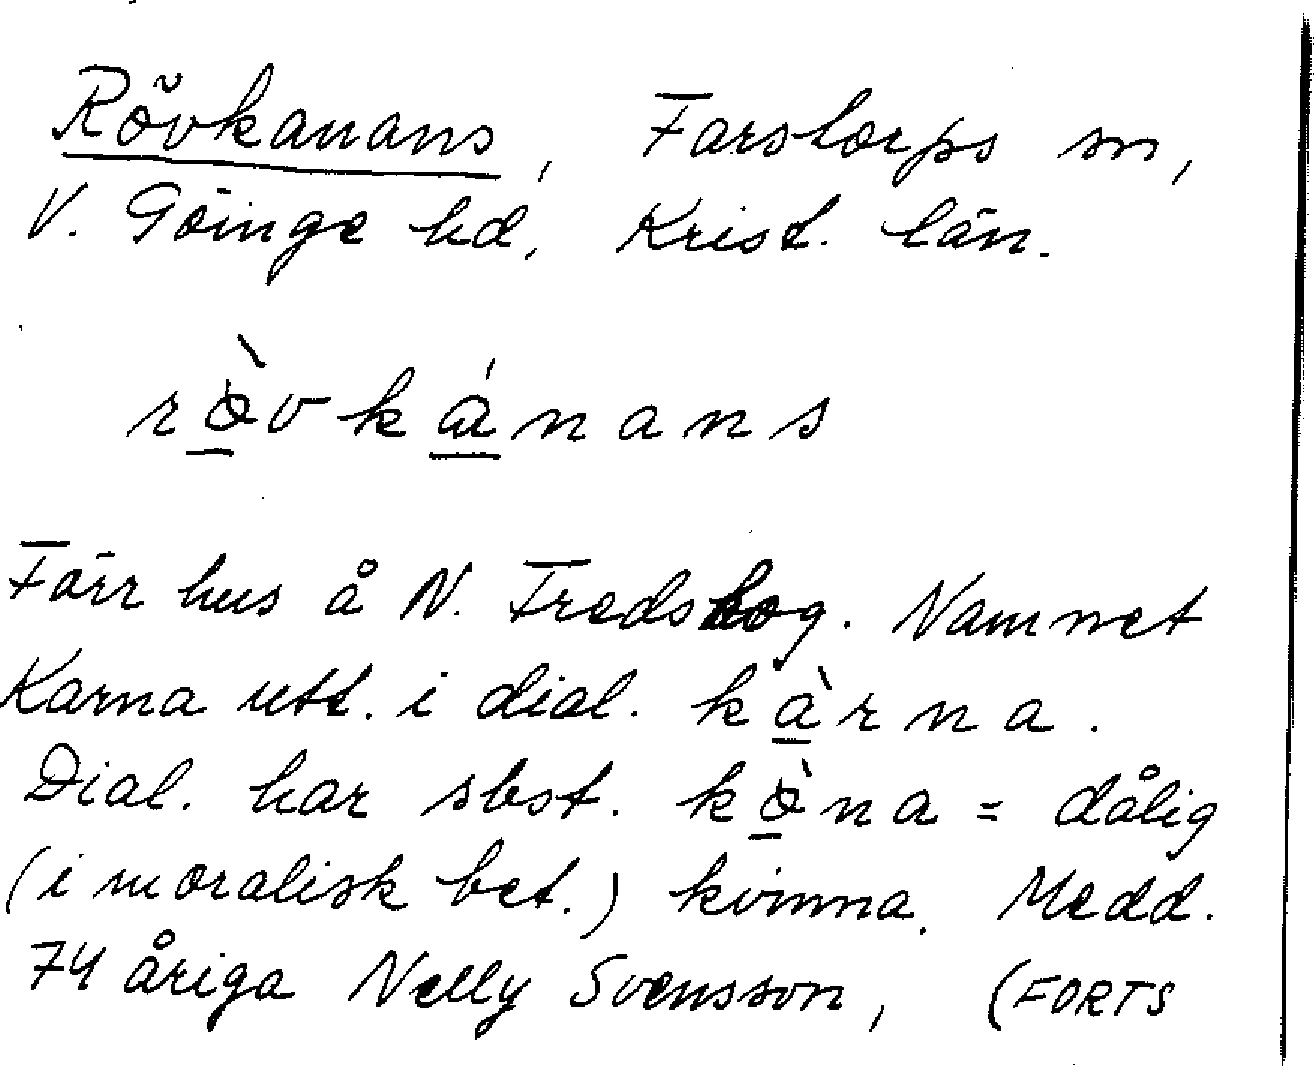 Rövkanans, Farstorps sn,
V. Göinge hd, Krist. län.
rö̀vkánans
Förr hus å N. Fredskog. Namnet
Karna utt. i dial. kàrna.
Dial. har sbst. kö̀na = dålig
(i moralisk bet.) kvinna. Medd.
74 åriga Nelly Svensson, (FORTS